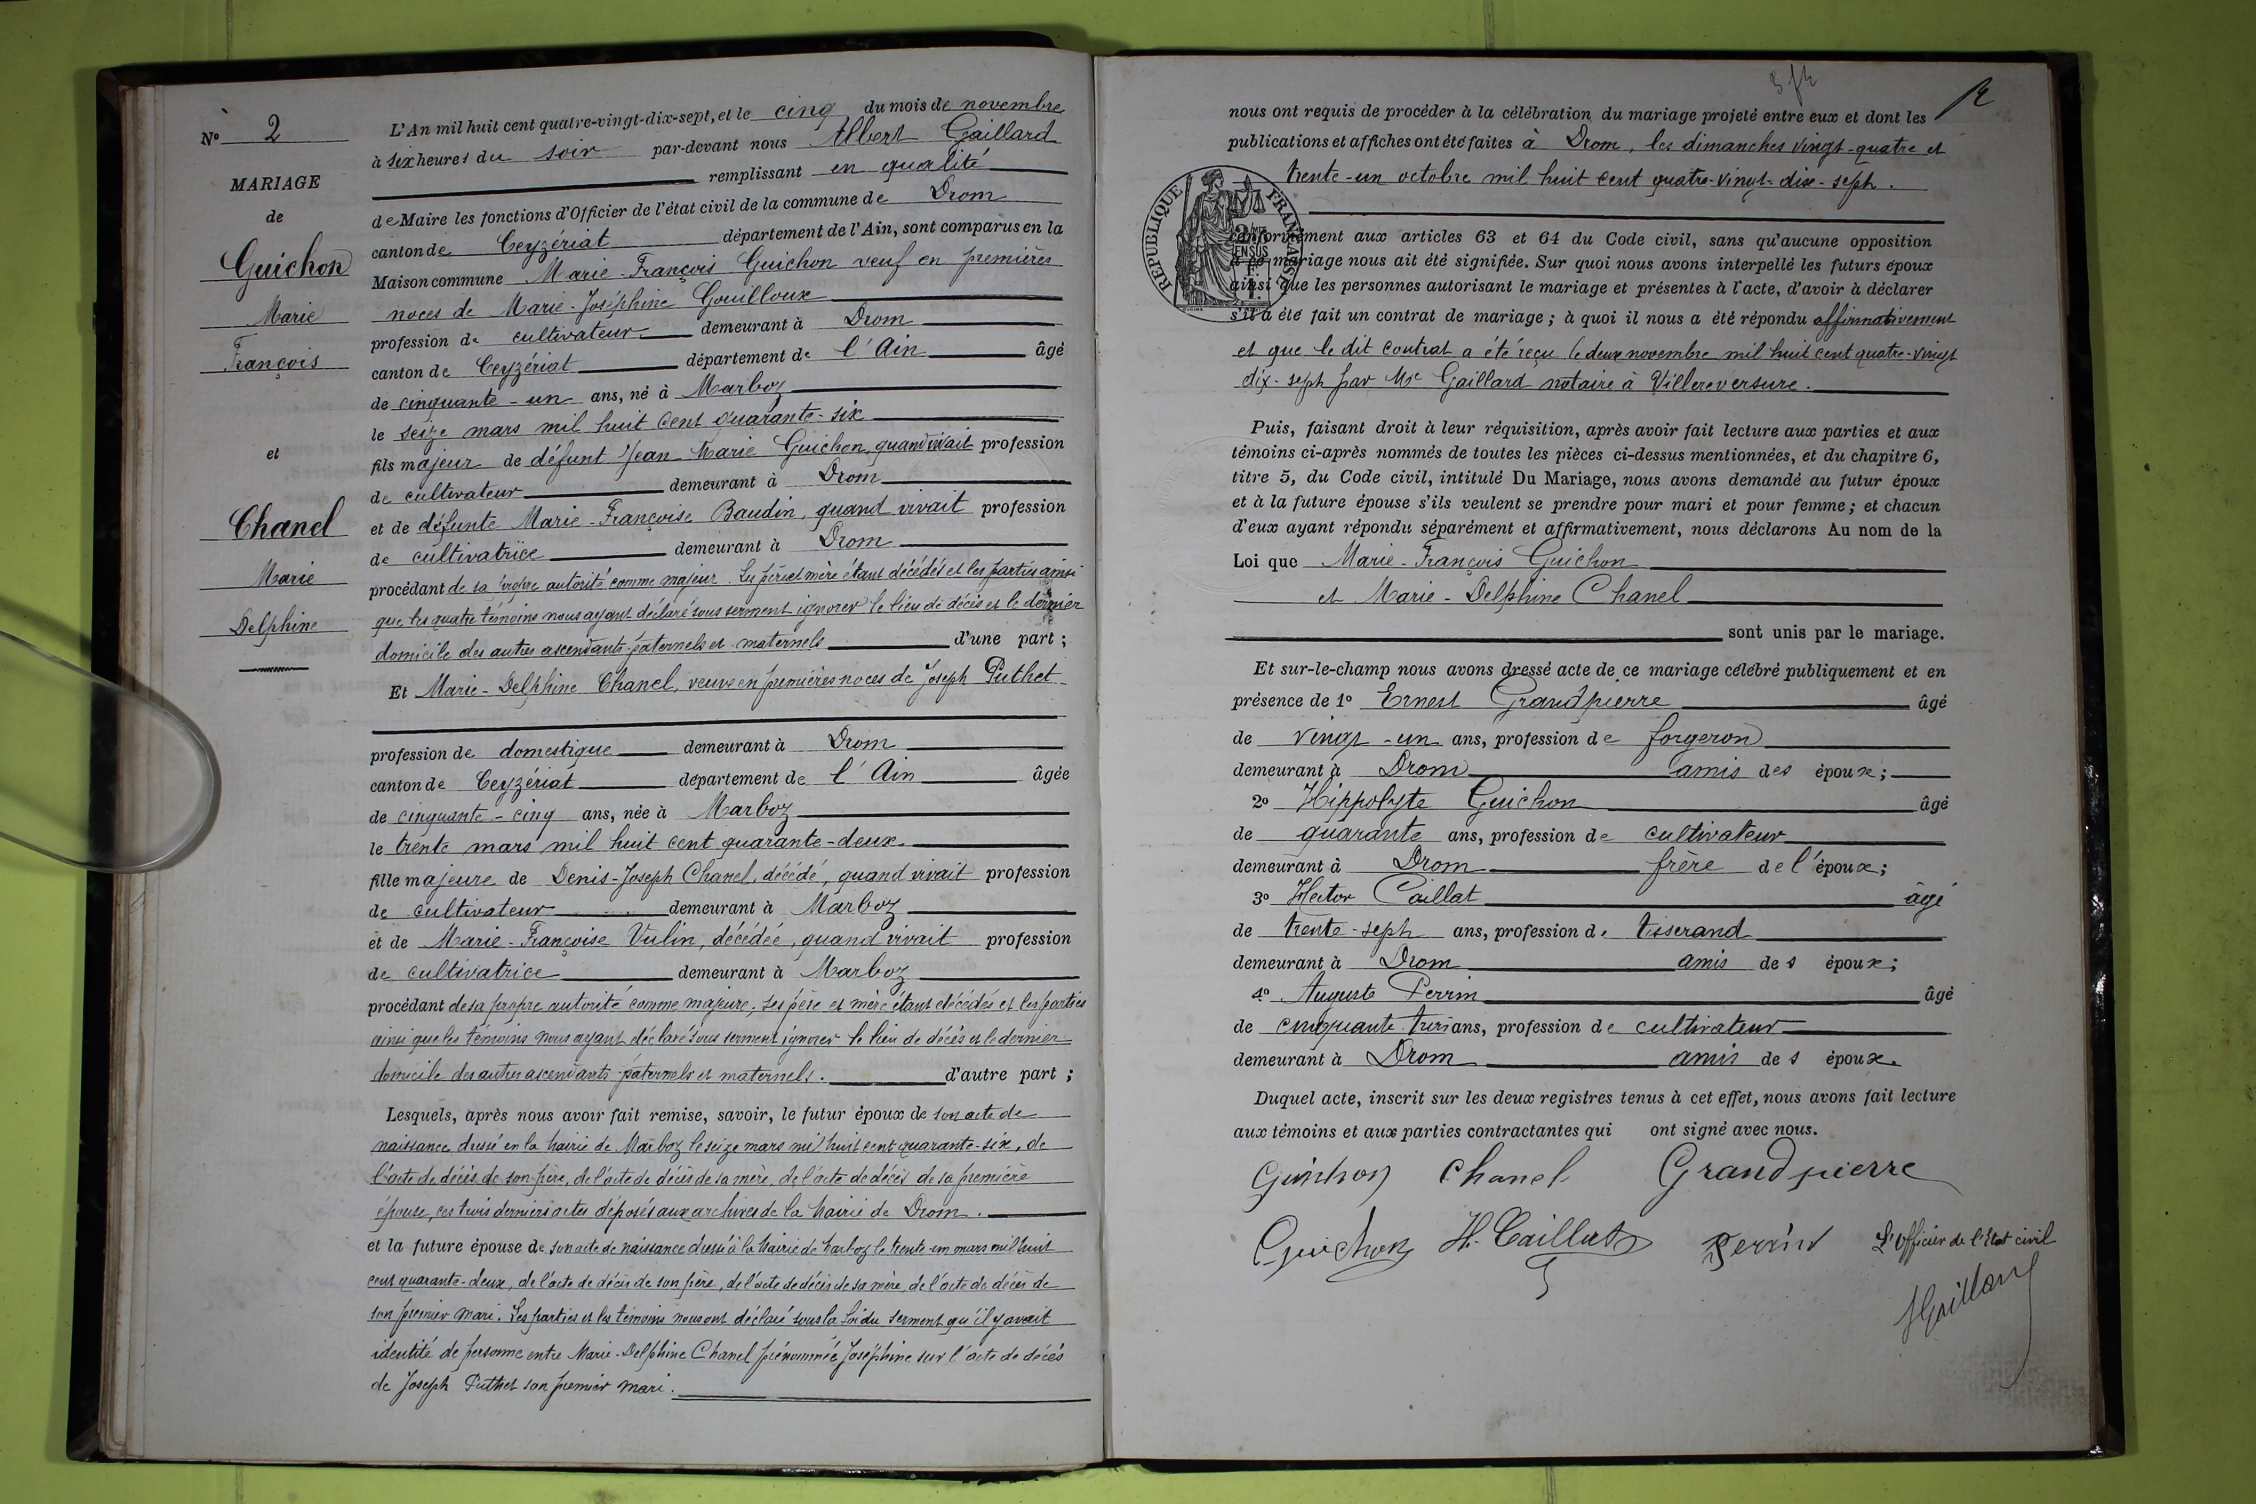 Nº 2
MARIAGE
de
Guichon
Marie
François
et
Chanel
Marie
Delphine
L'An mil huit cent quatre-vingt-dix-sept, et le cinq du mois de novembre
à six heures du soir par-devant nous Albert Gaillard
remplissant en qualité
de Maire les fonctions d'Officier de l'état civil de la commune de Drom
canton de Ceyzériat département de l'Ain, sont comparus en la
Maison commune Marie-François Guichon veuf en premières
noces de Marie-Joséphine Gouilloux
profession de cultivateur demeurant à Drom
canton de Ceyzériat département de l'Ain âgé
de cinquante-un ans, né à Marboz
le seize mars mil huit cent quarante-six
fils majeur de défunt Jean Marie Guichon, quand vivait profession
de cultivateur demeurant à Drom
et de défunte Marie-Françoise Baudin, quand vivait profession
de cultivatrice demeurant à Drom
procédant de sa propre autorité comme majeur. Ses père et mère étant décédés et les parties ainsi
que les quatre témoins nous ayant déclaré sous serment ignorer le lieu de décès et le dernier
domicile des autres ascendants paternels et maternels d'une part ;
Et Marie-Delphine Chanel, veuve en premières noces de Joseph Puthet
profession de domestique demeurant à Drom
canton de Ceyzériat département de l'Ain âgée
de cinquante-cinq ans, née à Marboz
le trente mars mil huit cent quarante-deux
fille majeure de Denis-Joseph Chanel, décédé, quand vivait profession
de cultivateur demeurant à Marboz
et de Marie-Françoise Vulin, décédée, quand vivait profession
de cultivatrice demeurant à Marboz
procédant de sa propre autorité comme majeure, ses père et mère étant décédés et les parties
ainsi que les témoins nous ayant déclaré sous serment ignorer le lieu de décès et le dernier
domicile des autres ascendants paternels et maternels. d'autre part ;
Lesquels, après nous avoir fait remise, savoir, le futur époux de son acte de
naissance dressé en la mairie de Marboz le seize mars mil huit cent quarante-six, de
l'acte de décès de son père, de l'acte de décès de sa mère, de l'acte de décès de sa première
épouse, ces trois derniers actes déposés aux archives de la mairie de Drom.
et la future épouse de son acte de naissance dressé à la mairie de Marboz le trente-un mars mil huit
cent quarante-deux, de l'acte de décès de son père, de l'acte de décès de sa mère, de l'acte de décès de
son premier mari. Les parties et les témoins nous ont déclaré sous la foi du serment qu'il y avait
identité de personne entre Marie-Delphine Chanel prénommée Joséphine sur l'acte de décès
de Joseph Puthet son premier mari.
12
nous ont requis de procéder à la célébration du mariage projeté entre eux et dont les
publications et affiches ont été faites à Drom, les dimanches vingt-quatre et
trente-un octobre mil huit cent quatre-vingt-dix-sept.
RÉPUBLIQUE FRANÇAISE
conformément aux articles 63 et 64 du Code civil, sans qu'aucune opposition
à ce mariage nous ait été signifiée. Sur quoi nous avons interpellé les futurs époux
ainsi que les personnes autorisant le mariage et présentes à l'acte, d'avoir à déclarer
s'il a été fait un contrat de mariage ; à quoi il nous a été répondu affirmativement
et que le dit contrat a été reçu le deux novembre mil huit cent quatre-vingt
dix-sept par Me Gaillard notaire à Villereversure.
Puis, faisant droit à leur réquisition, après avoir fait lecture aux parties et aux
témoins ci-après nommés de toutes les pièces ci-dessus mentionnées, et du chapitre 6,
titre 5, du Code civil, intitulé Du Mariage, nous avons demandé au futur époux
et à la future épouse s'ils veulent se prendre pour mari et pour femme ; et chacun
d'eux ayant répondu séparément et affirmativement, nous déclarons Au nom de la
Loi que Marie-François Guichon
et Marie-Delphine Chanel
sont unis par le mariage.
Et sur-le-champ nous avons dressé acte de ce mariage célébré publiquement et en
présence de 1º Ernest Grandpierre âgé
de vingt-un ans, profession de forgeron
demeurant à Drom amis des époux ;
2º Hippolyte Guichon âgé
de quarante ans, profession de cultivateur
demeurant à Drom frère de l'époux ;
3º Hector Caillat âgé
de trente-sept ans, profession de tisserand
demeurant à Drom amis des époux ;
4º Auguste Perrin âgé
de cinquante trois ans, profession de cultivateur
demeurant à Drom amis des époux.
Duquel acte, inscrit sur les deux registres tenus à cet effet, nous avons fait lecture
aux témoins et aux parties contractantes qui ont signé avec nous.
Guichon Chanel Grandpierre
Guichon H. Caillat Perrin L'Officier de l'Etat civil
AGaillard